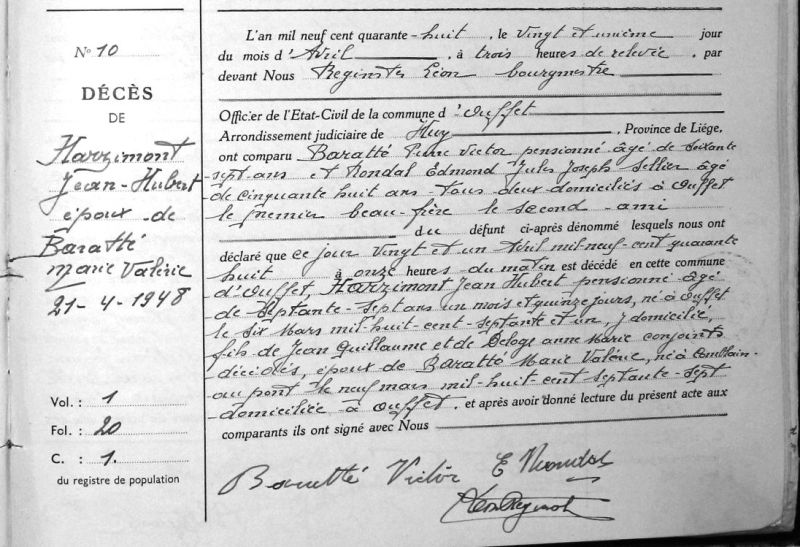 N° 10
DÉCÈS
DE
Harzimont
Jean-Hubert
époux de
Baratté
Marie Valérie
21-4-1948
Vol. : 1
Fol. : 20
C. : 1.
du registre de population
L'an mil neuf cent quarante-huit, le vingt et unième jour
du mois d'Avril, à trois heures de relevée, par
devant Nous Reginster Léon bourgmestre
Officier de l'Etat-Civil de la commune d'Ouffet
Arrondissement judiciaire de Huy, Province de Liége,
ont comparu Baratté Pierre Victor pensionné âgé de soixante
sept ans et Nondal Edmond Jules Joseph Sellier âgé
de cinquante huit ans - tous deux domiciliés à Ouffet
le premier beau-frère le second ami
du défunt ci-après dénommé lesquels nous ont
déclaré que ce jour vingt et un Avril mil neuf cent quarante
huit à onze heures du matin est décédé en cette commune
d'Ouffet, Harzimont Jean Hubert pensionné âgé
de septante-sept ans un mois et quinze jours, né à Ouffet
le six Mars mil-huit-cent-septante et un, y domicilié,
fils de Jean Guillaume et de Deloge Anne Marie conjoints
décédés, époux de Baratté Marie Valérie, née à Comblain-
au pont le neuf mars mil-huit cent septante-sept
domiciliée à Ouffet. et après avoir donné lecture du présent acte aux
comparants ils ont signé avec Nous
Baratté Victor E Nondal